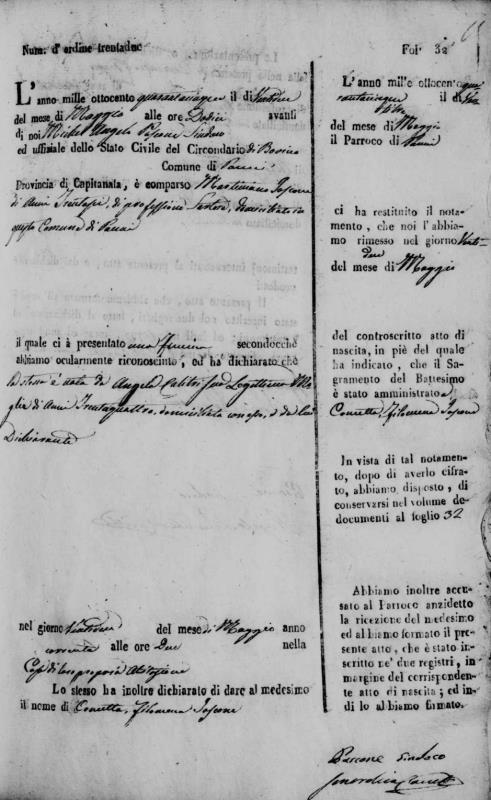 Num. d' ordine trentadue
L' anno mille ottocento quarantacinque il dì Ventidue
del mese di Maggio alle ore Dodici avanti
di noi Michel' Angelo Pascone Sindaco
ed uffiziale dello Stato Civile del Circondario di Bovino
Comune di Panni
Provincia di Capitanata, è comparso
di anni Trentasei, di professione domiciliato in
questo Comune di Panni
il quale ci à presentato una secondocchè
abbiamo ocularmente riconosciuto, ed ha dichiarato che
la stessa è nata da Angela sua Legittima Mo
glie di anni Trentaquattro, domiciliata con esso, e da lui
Dichiarante
nel giorno Ventidue del mese di Maggio anno
corrente alle ore Due nella
Casa di loro propria Abitazione
Lo stesso ha inoltre dichiarato di dare al medesimo
il nome di Concetta, Filomena
Fol° 32
L' anno mille ottocento qua
rantacinque il dì
del mese di Maggio
il Parroco di Panni
ci ha restituito il nota-
mento, che noi l'abbia-
mo rimesso nel giorno Venti
due
del mese di Maggio
del controscritto atto di
nascita, in piè del quale
ha indicato, che il Sa-
gramento del Battesimo
è stato amministrato a
Concetta, Filomena
In vista di tal notamen-
to, dopo di averlo cifra-
to, abbiamo disposto, di
conservarsi nel volume de-
documenti al foglio 32
Abbiamo inoltre accu-
sato al Parroco anzidetto
la ricezione del medesimo
ed abbiamo formato il pre
sente atto, che è stato in-
scritto ne' due registri, in
margine del corrisponden-
te atto di nascita; ed in-
di lo abbiamo firmato.
Pascone Sindaco